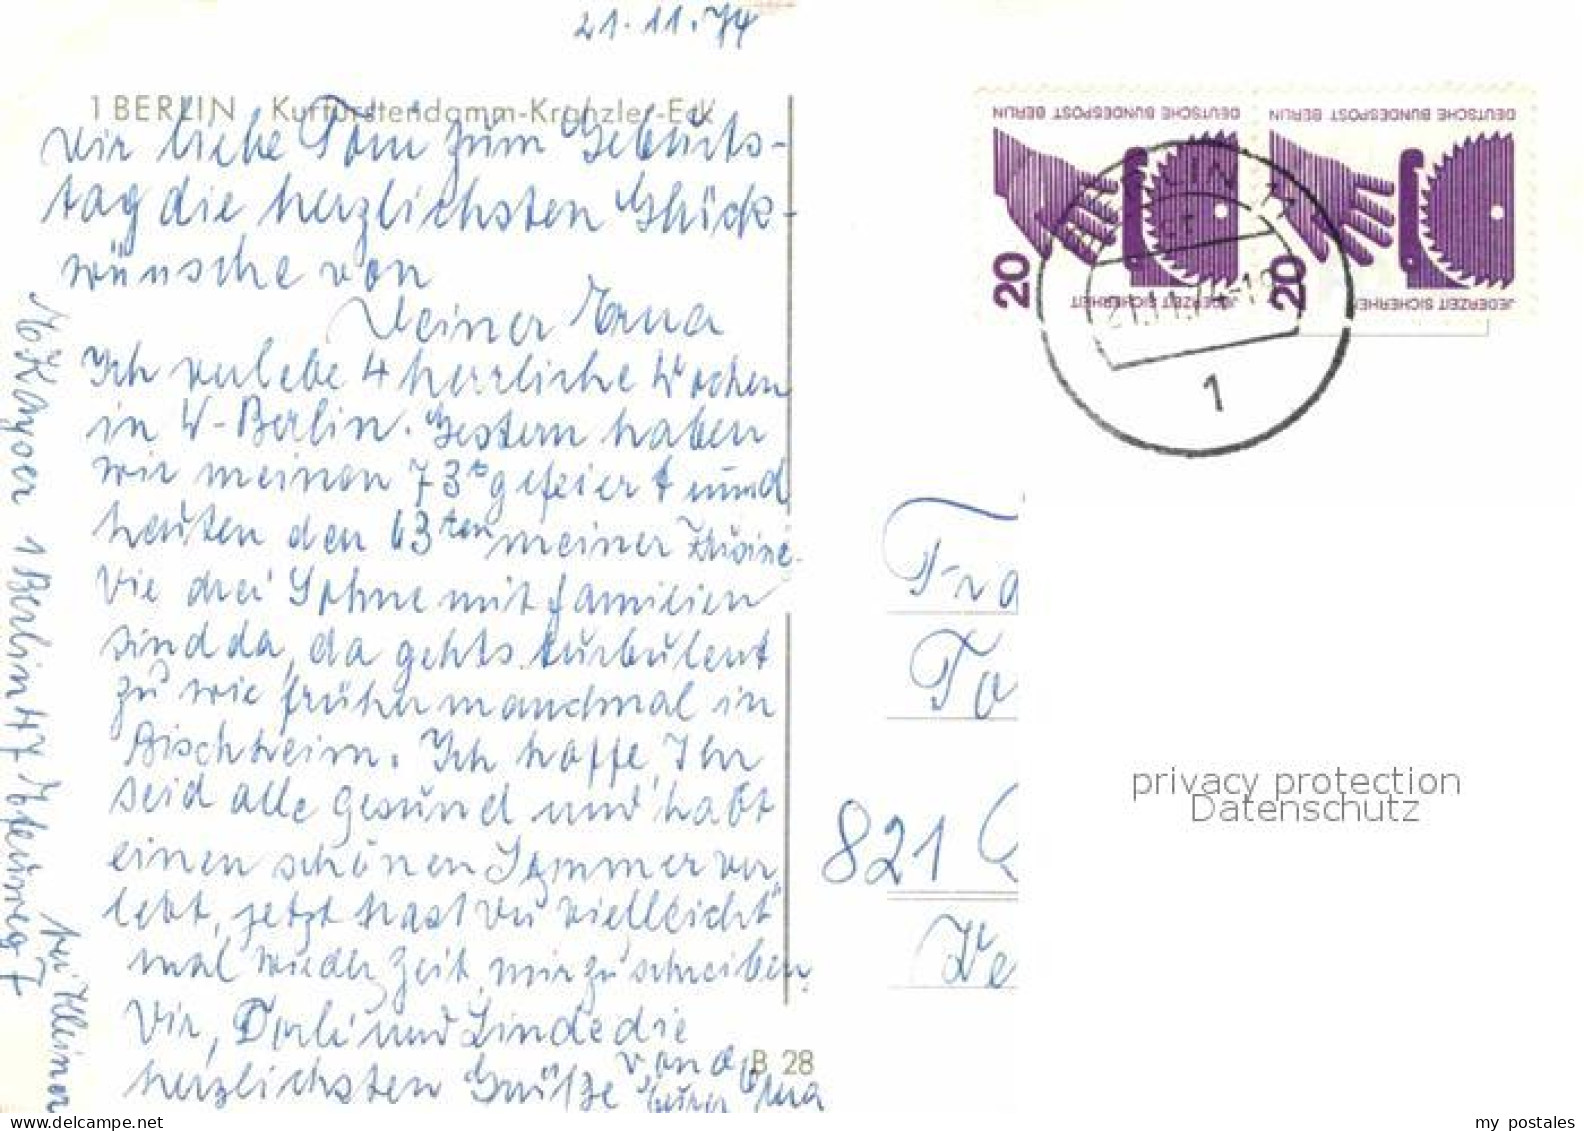 21.11.74
1 BERLIN Kurfürstendamm-Kranzler-Eck
Dir liebe Toni zum Geburts-
tag die herzlichsten Glück-
wünsche von
Deiner Erna
Ich verlebe 4 herrliche Wochen
in W-Berlin. Gestern haben
wir meinen 73t gefeiert und
heuten den 63ten meiner
Die drei Söhne mit Familien
sind da, da gehts turbulent
zu wie früher manchmal in
Bischheim. Ich hoffe, Ihr
seid alle gesund und habt
einen schönen Sommer ver
lebt, jetzt hast Du vielleicht
mal wieder Zeit, mir zu schreiben.
Dir, und Linde die
herzlichsten Grüße von
Eurer Erna
B 28
Kayser 1 Berlin 47 7
bei Kleiner
DEUTSCHE BUNDESPOST BERLIN
20
JEDERZEIT SICHERHEIT
DEUTSCHE BUNDESPOST BERLIN
20
JEDERZEIT SICHERHEIT
BERLIN 11
21.11.74-18
1
Fra
To
821
We
privacy protection
Datenschutz
my postales